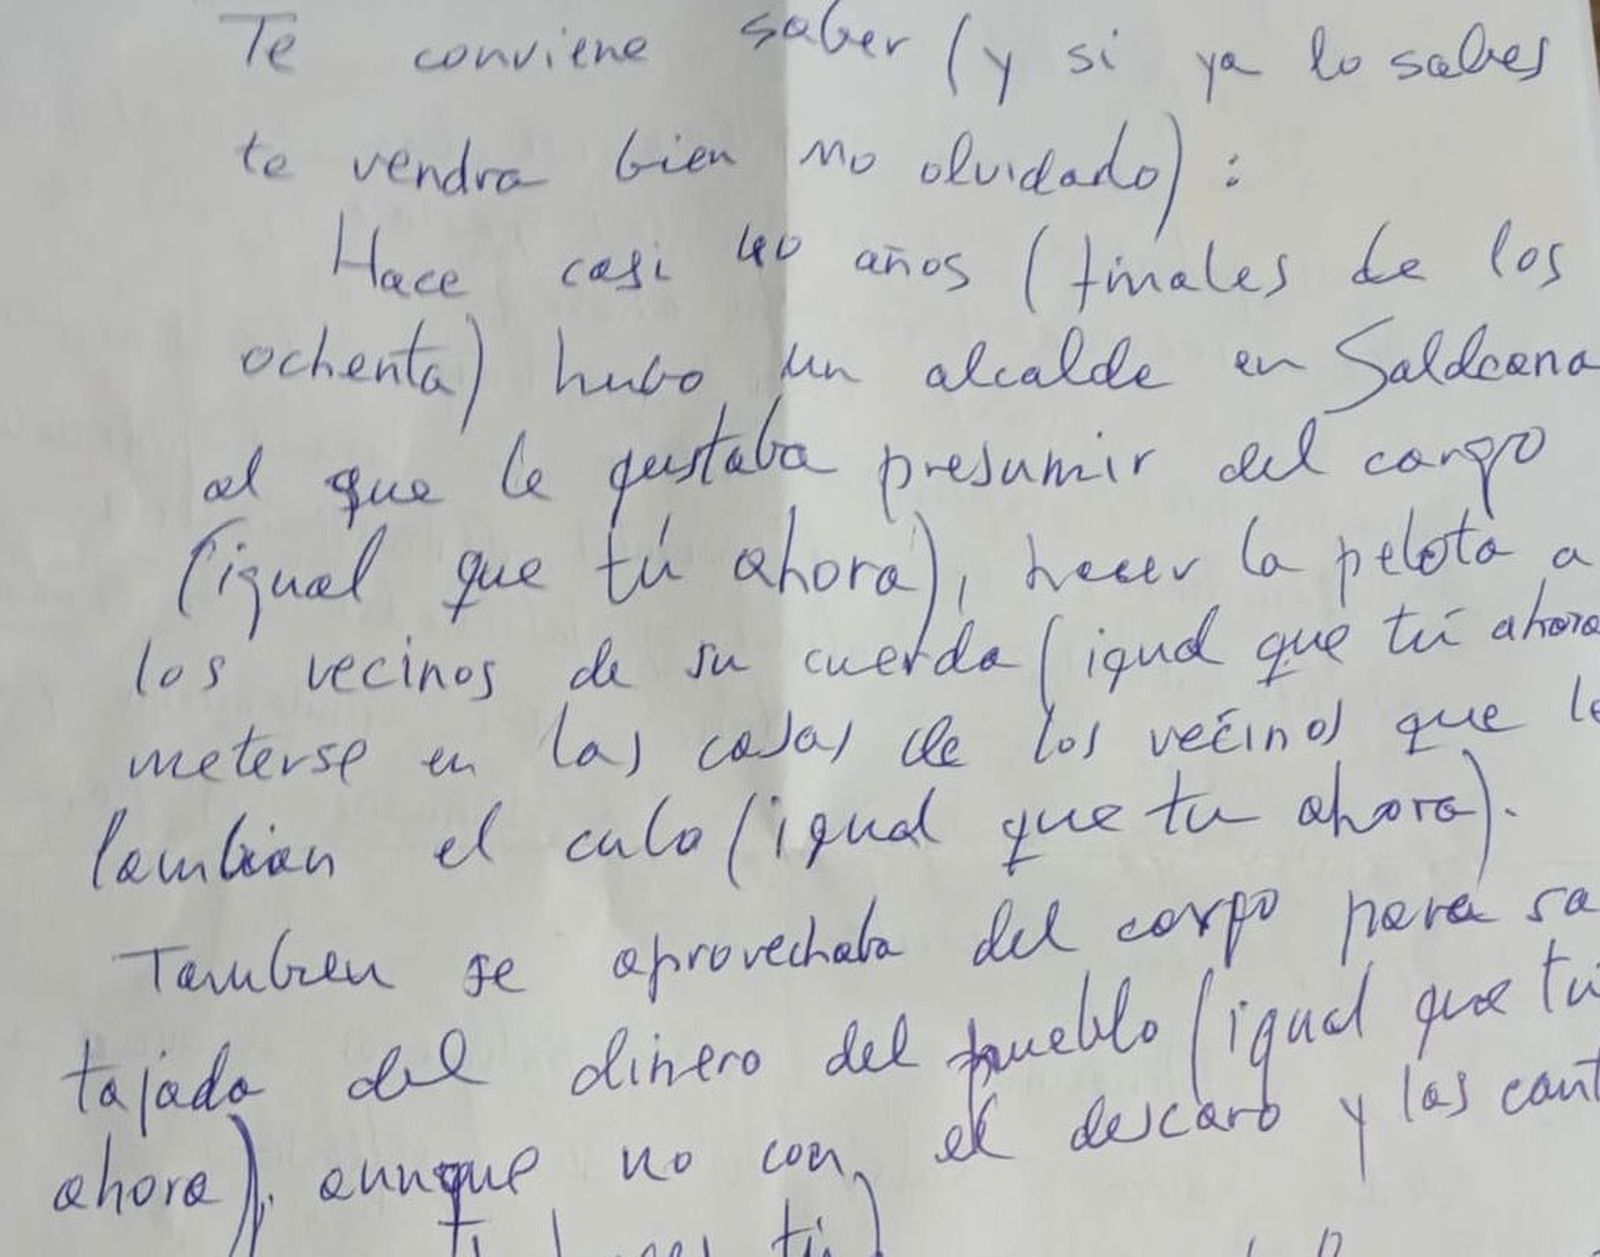 Te conviene saber (y si ya lo sabes
te vendra bien no olvidado) :
Hace casi 40 años (finales de los
ochenta) hubo un alcalde en Saldeana
al que le gustaba presumir del cargo
(igual que tú ahora), hacer la pelota a
los vecinos de su cuerda (igual que tú ahora
meterse en las casas de los vecinos que le
lambian el culo (igual que tu ahora).
Tambien se aprovechaba del cargo para sa
tajada del dinero del pueblo (igual que tú
ahora), aunque no con el descaro y las cant
tú)